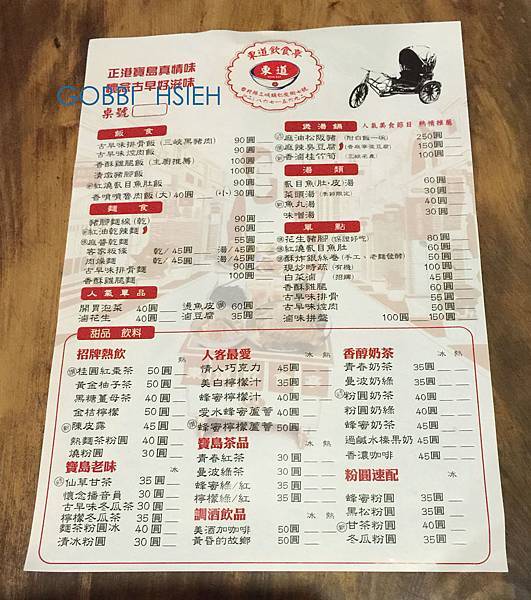 正港寶島真情味
古早好滋味
GOBBI HSIEH
桌號
東道飲食亭
東道
飯 食
古早味排骨飯(三峽黑豬肉) 90圓
古早味焢肉飯 90圓
香酥雞腿飯(主廚推薦) 100圓
清燉豬腳飯 100圓
紅燒虱目魚肚飯 90圓
香噴噴魯肉飯(大)40圓 (小)30圓
麵 食
豬腳麵線(乾) 90圓
紅油乾辣麵 60圓
麻醬乾麵 55圓
客家粄條 乾/45圓 湯/45圓
肉燥麵 乾/45圓 湯/45圓
古早味排骨麵 90圓
香酥雞腿麵 100圓
人氣單品
開胃泡菜 40圓
滷花生 40圓
燙魚皮 60圓
滷豆腐 35圓
煲湯鍋
人氣美食節目 熱情推薦
麻油松阪豬(附白飯一碗) 250圓
麻辣臭豆腐 150圓
香滷桂竹筍 100圓
湯 類
虱目魚(肚.皮)湯 60圓
菜頭湯(季節限定) 30圓
魚丸湯 40圓
味噌湯 30圓
單 點
花生豬腳(保證好吃) 80圓
紅燒虱目魚肚 60圓
酥炸銀絲卷(手工、老麵發酵) 50圓
現炒時蔬(有機) 100圓
白菜滷(招牌) 45圓
香酥雞腿 60圓
古早味排骨 55圓
古早味焢肉 50圓
滷味拼盤 100圓 150圓
甜品 飲料
招牌熱飲 熱
桂圓紅棗茶 50圓
黃金柚子茶 50圓
黑糖薑母茶 40圓
金桔檸檬 50圓
陳皮露 45圓
熱麵茶粉圓 40圓
燒粉圓 30圓
寶島老味 冰
仙草甘茶 35圓
懷念播音員 30圓
古早味冬瓜茶 30圓
檸檬冬瓜茶 35圓
麵茶粉圓冰 40圓
清冰粉圓 30圓
人客最愛 冰 熱
情人巧克力 45圓
美白檸檬汁 35圓
蜂蜜檸檬汁 40圓
愛水蜂蜜蘆薈 40圓
蜂蜜檸檬蘆薈 50圓
寶島茶品 冰 熱
青春紅茶 30圓
曼波綠茶 30圓
蜂蜜綠/紅 35圓
檸檬綠/紅 35圓
調酒飲品 冰 熱
美酒加咖啡 50圓
黃昏的故鄉 50圓
香醇奶茶 冰 熱
青春奶茶 35圓
曼波奶綠 35圓
粉圓奶茶 40圓
粉圓奶綠 40圓
蜂蜜奶茶 45圓
過鹹水榛果奶 45圓
香濃咖啡 45圓
粉圓速配 冰
蜂蜜粉圓 35圓
黑松粉圓 35圓
甘茶粉圓 40圓
冬瓜粉圓 35圓